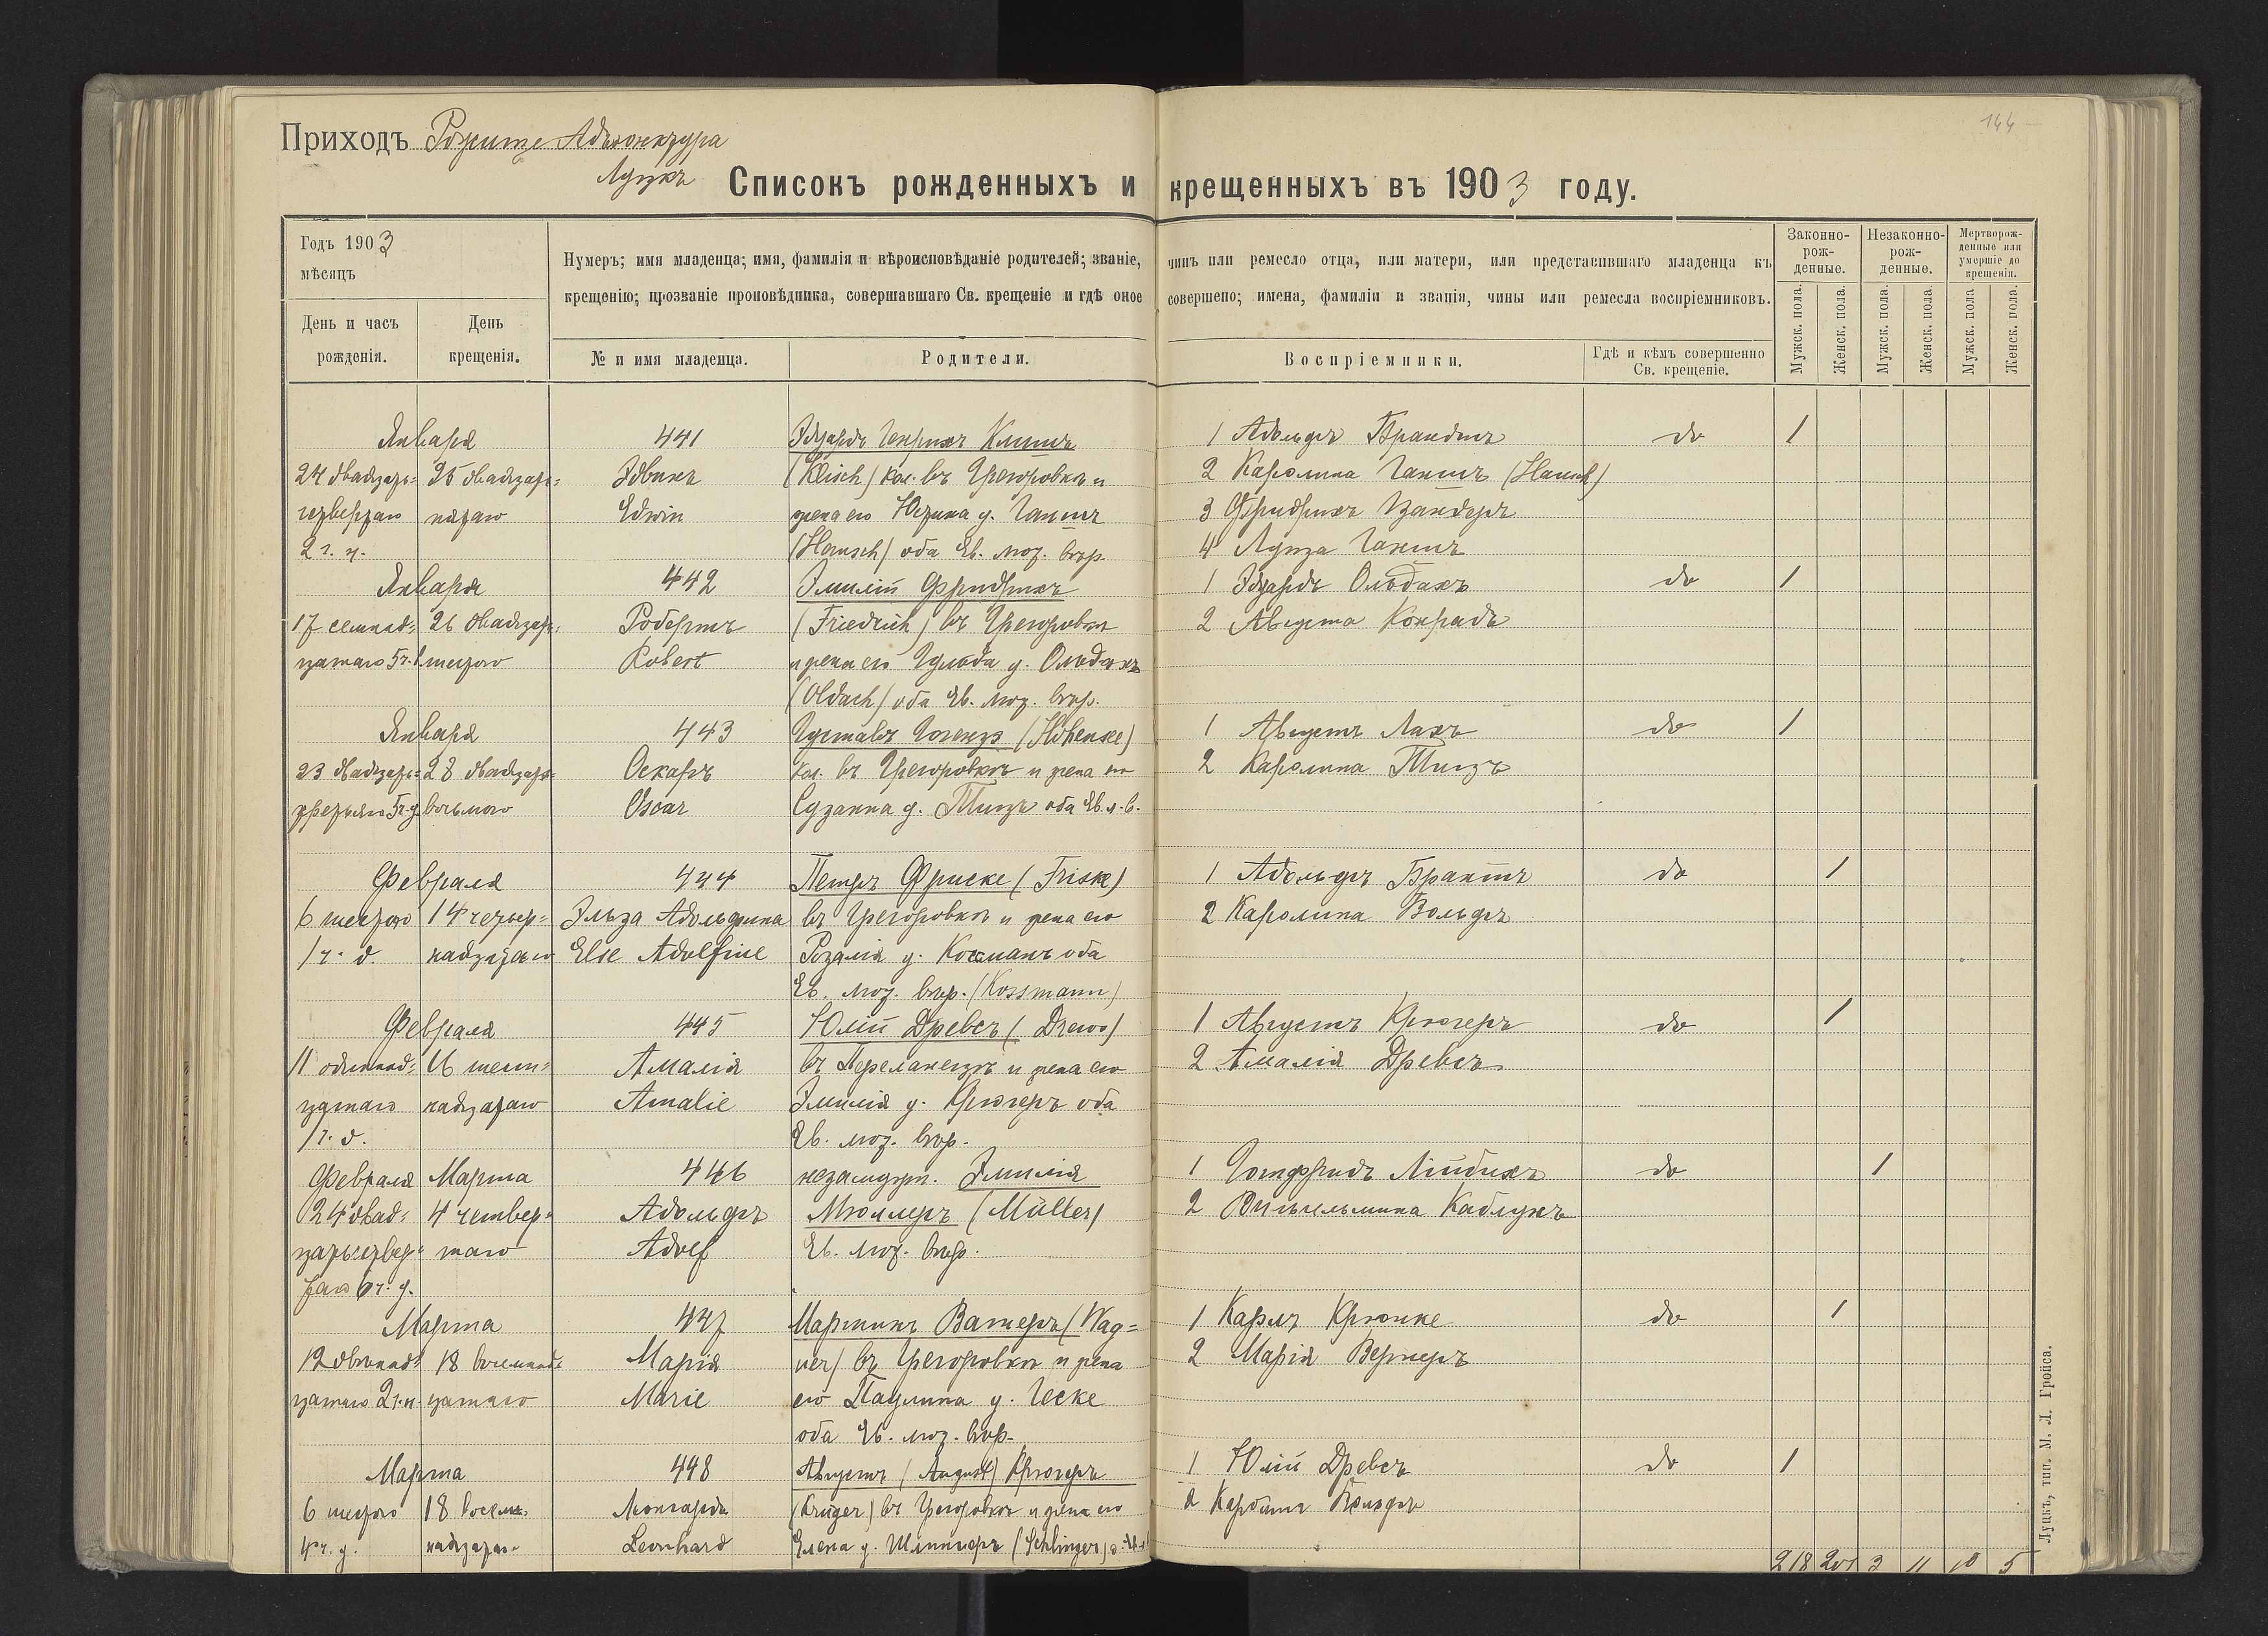 144
Приходъ Рожище Адъюнктура
Луцкъ
Списокъ рожденныхъ и крещенныхъ въ 1903 году.
Годъ 1903
мѣсяцъ
День и часъ рожденія.
День крещенія.
Нумеръ; имя младенца; имя, фамилія и вѣроисповѣданіе родителей; званіе, чинъ или ремесло отца, или матери, или представившаго младенца къ
крещенію; прозваніе проповѣдника, совершавшаго Св. крещеніе и гдѣ оное совершено; имена, фамиліи и званія, чины или ремесла воспріемниковъ.
№ и имя младенца.
Родители.
Воспріемники.
Гдѣ и кѣмъ совершенно Св. крещеніе.
Законно-рож-денные.
Незаконно-рож-денные.
Мертворож-денные или умершіе до крещенія.
Мужск. пола.
Женск. пола.
Мужск. пола.
Женск. пола.
Мужск. пола
Женск. пола.
Января 441 Эдуардъ Генрихъ Клишъ 1 Адольфъ Брандтъ до 1
24 двадцать= 25 двадцать= Эдвинъ (Klisch) кол. въ Грегоровкѣ и 2 Каролина Ганшъ (Hansch)
четвертаго пятаго Edwin жена его Юстина у. Ганшъ 3 Фридрихъ Цандеръ
2 ч. н. (Hansch) оба Ев. лют. вѣр. 4 Луиза Ганшъ
Января 442 Эмилій Фридрихъ 1 Эдуардъ Ольдахъ до 1
17 семнад= 26 двадцать= Робертъ (Friedrich) въ Грегоровкѣ 2 Августа Конрадъ
цатаго 5 ч. шестого Robert и жена его Гульда у. Ольдахъ
(Oldach) оба Ев. лют. вѣр.
Января 443 Густавъ Гогензе (Hohensee) 1 Августъ Лахъ до 1
23 двадцать= 28 двадцать= Оскаръ кол. въ Грегоровкѣ и жена его 2 Каролина Тицъ
третьяго 5 ч. у восьмого Oscar Сузанна у. Тицъ оба Ев. л. в.
Февраля 444 Петръ Фриске (Friske) 1 Адольфъ Брантъ до 1
6 шестого 14 четыр= Эльза Адольфина въ Грегоровкѣ и жена его 2 Каролина Вольфъ
1 ч. д. надцатаго Else Adolfine Розалія у. Косманъ оба
Ев. лют. вѣр. (Kossmann)
Февраля 445 Юлій Древсъ (Drews) 1 Августъ Крюгеръ до 1
11 одиннад= 16 шест= Амалія въ Переланецъ и жена его 2 Амалія Древсъ
цатаго надцатаго Amalie Эмилія у. Крюгеръ оба
1 ч. д. Ев. лют. вѣр.
Февраля Марта 446 незамужн. Эмилія 1 Готфридъ Лійбихъ до 1
24 двад= 4 четвер= Адольфъ Мюллеръ (Müller) 2 Вильгельмина Каблухъ
цатьчетвер= таго Adolf Ев. лют. вѣр.
таго 6 ч. у.
Марта 447 Мартинъ Вагнеръ (Wag= 1 Карлъ Крюнке до 1
12 двѣнад= 18 восемнад= Марія ner) въ Грегоровкѣ и жена 2 Марія Вернеръ
цатаго 2 ч. н. цатаго Marie его Паулина у. Геске
оба Ев. лют. вѣр.
Марта 448 Августъ (August) Крюгеръ 1 Юлій Древсъ до 1
6 шестого 18 восем= Леонгардъ (Krüger) въ Грегоровкѣ и жена его 2 Каролина Вольфъ
4 ч. у. надцатаго Leonhard Елена у. Шлингеръ (Schlinger)
218 201 3 11 10 5
Луцкъ, тип. М. Л. Гройса.